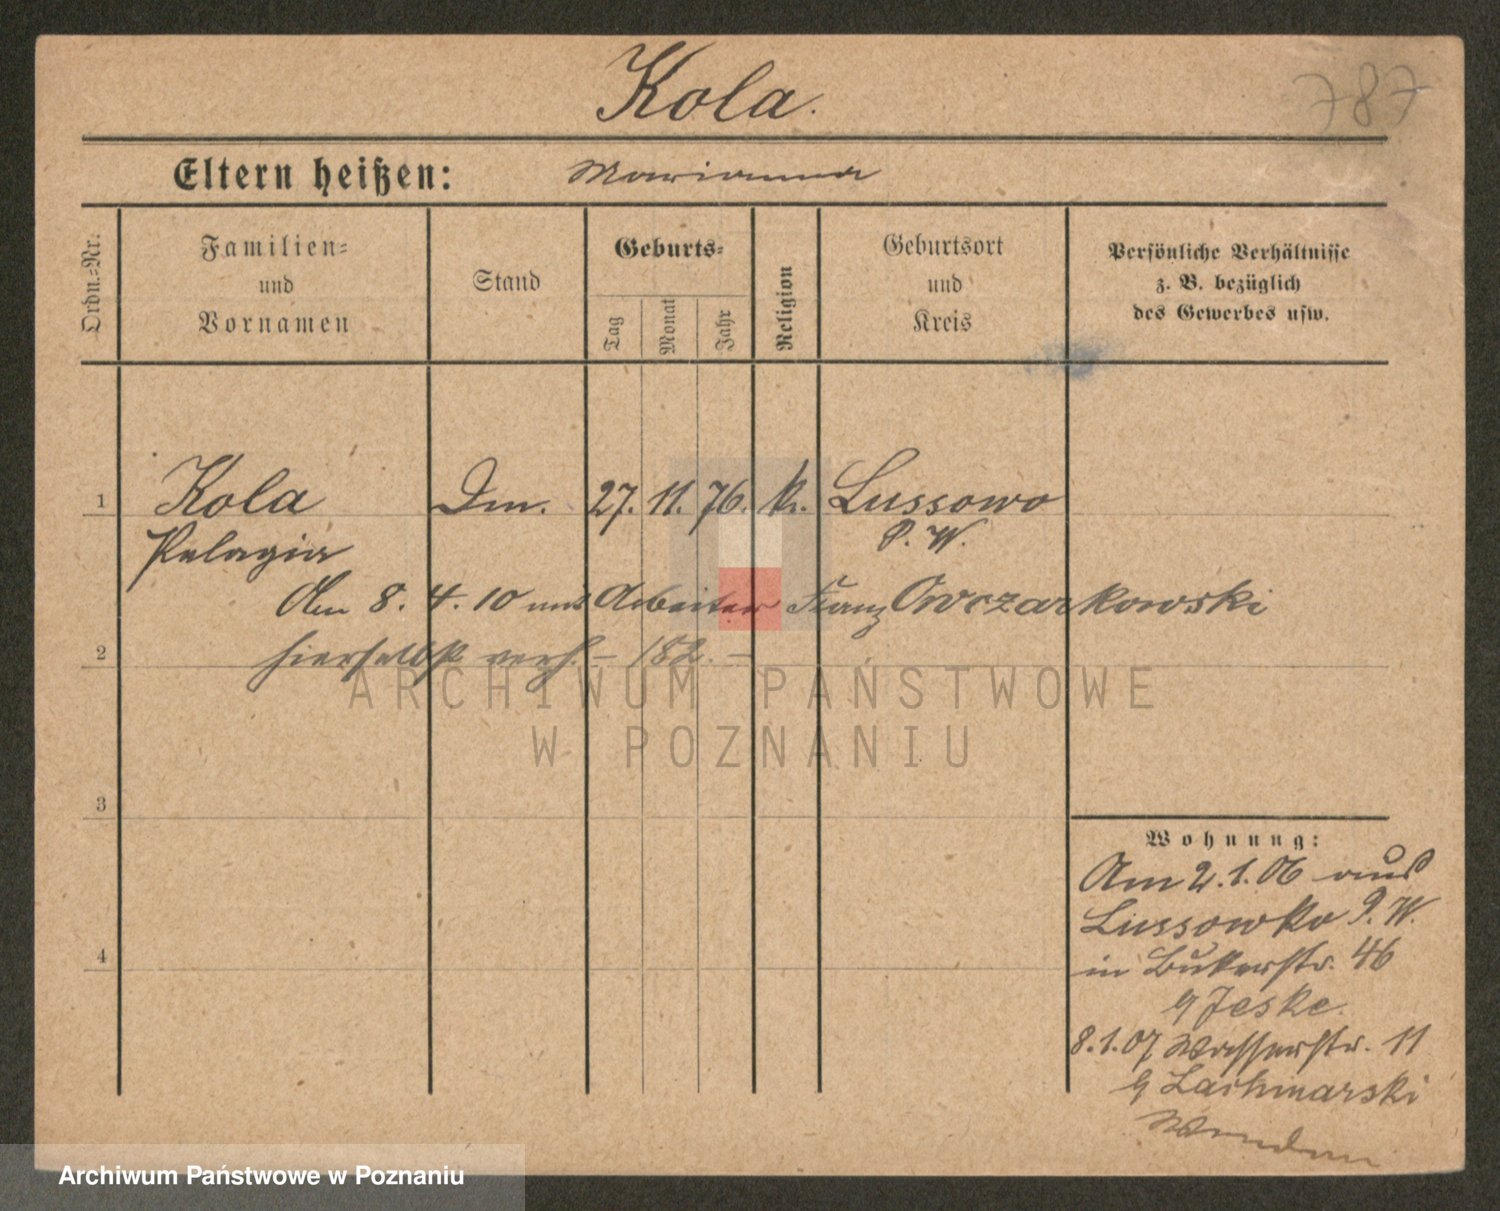 Kola.
787
Eltern heißen: Marianna
Ordn.-Nr.
Familien-
und
Vornamen
Stand
Geburts-
Tag
Monat
Jahr
Religion
Geburtsort
und
Kreis
Persönliche Verhältnisse
z. B. bezüglich
des Gewerbes usw.
1 Kola Dm. 27. 11. 76. k. Lussowo
Pelagia P. W.
Am 8. 4. 10 mit Arbeiter Franz Owczarkowski
2 hierselbst verh. – 182. –
ARCHIWUM PAŃSTWOWE
W POZNANIU
3
4
Wohnung:
Am 2.1.06 aus
Lussowko P. W.
in Bukerstr. 46
b/ Jeske.
8.1.07 Wasserstr. 11
b/ Lachmarski
Archiwum Państwowe w Poznaniu